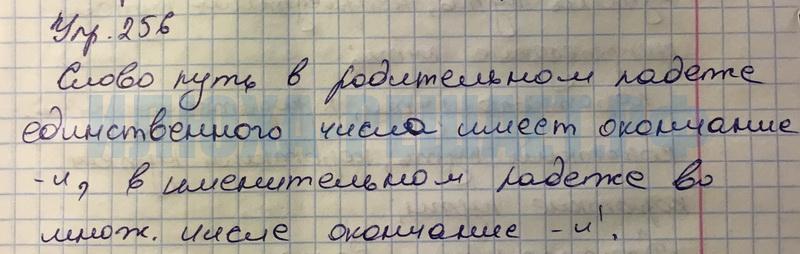 Упр. 256
Слово путь в родительном падеже
единственного числа имеет окончание
-и, в именительном падеже во
множ. числе окончание -и.